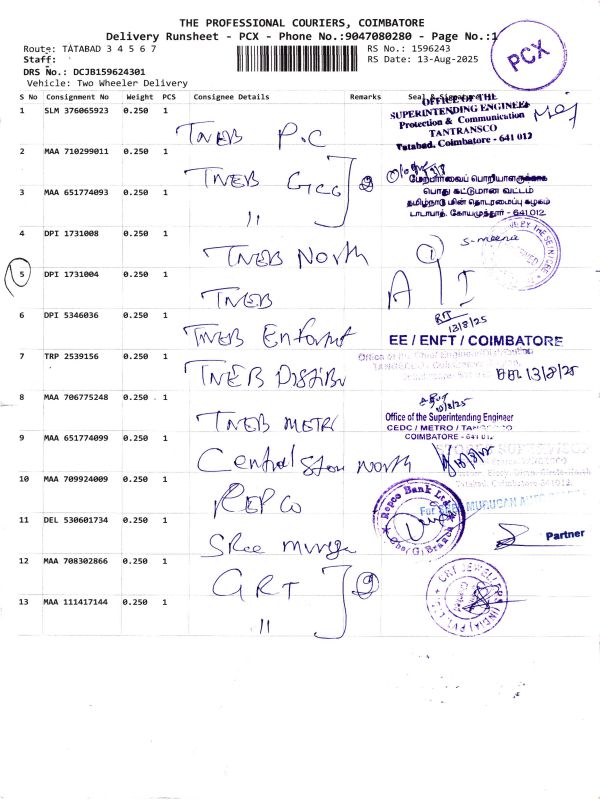 THE PROFESSIONAL COURIERS, COIMBATORE
Delivery Runsheet - PCX - Phone No.:9047080280 - Page No.:1
Route: TATABAD 3 4 5 6 7
RS No.: 1596243
Staff:
RS Date: 13-Aug-2025
DRS No.: DCJB159624301
Vehicle: Two Wheeler Delivery
PCX
S No Consignment No Weight PCS Consignee Details Remarks Seal & Signature
1 SLM 376065923 0.250 1 TNEB P.C
OFFICE OF THE
SUPERINTENDING ENGINEER
Protection & Communication
TANTRANSCO
Tatabad, Coimbatore - 641 012
2 MAA 710299011 0.250 1 TNEB GCC ②
மேற்பார்வைப் பொறியாளருக்காக
பொது கட்டுமான வட்டம்
தமிழ்நாடு மின் தொடரமைப்பு கழகம்
டாடாபாத், கோயமுத்தூர் - 641 012.
3 MAA 651774093 0.250 1 "
4 DPI 1731008 0.250 1 TNEB North ①
S-meena
5 DPI 1731004 0.250 1 TNEB
6 DPI 5346036 0.250 1 TNEB
13/8/25
EE / ENFT / COIMBATORE
7 TRP 2539156 0.250 1 TNEB
Office of the Chief Engineer/Distribution
13/8/25
8 MAA 706775248 0.250 1 TNEB METRO
Office of the Superintending Engineer
CEDC / METRO / TANGEDCO
COIMBATORE - 641 012
9 MAA 651774099 0.250 1 Central Store North
10 MAA 709924009 0.250 1 REPCO
Repco Bank Ltd
11 DEL 530601734 0.250 1 Sree
Partner
12 MAA 708302866 0.250 1 GRT ②
GRT JEWELLERS (INDIA) PVT. LTD.
13 MAA 111417144 0.250 1 "